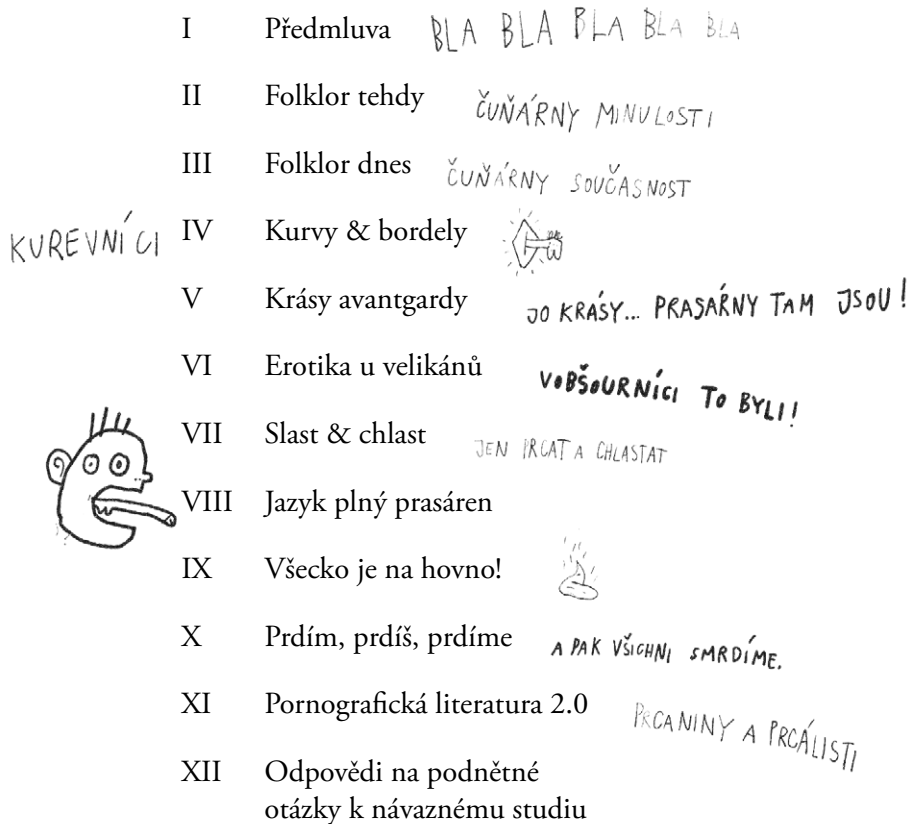 I Předmluva BLA BLA BLA BLA BLA
II Folklor tehdy ČUŇÁRNY MINULOSTI
III Folklor dnes ČUŇÁRNY SOUČASNOST
KUREVNÍCI IV Kurvy & bordely
V Krásy avantgardy JO KRÁSY... PRASÁRNY TAM JSOU!
VI Erotika u velikánů VOBŠOURNÍCI TO BYLI!
VII Slast & chlast JEN PRCAT A CHLASTAT
VIII Jazyk plný prasáren
IX Všecko je na hovno!
X Prdím, prdíš, prdíme A PAK VŠICHNI SMRDÍME.
XI Pornografická literatura 2.0 PRCANINY A PRCÁLISTI
XII Odpovědi na podnětné
otázky k návaznému studiu